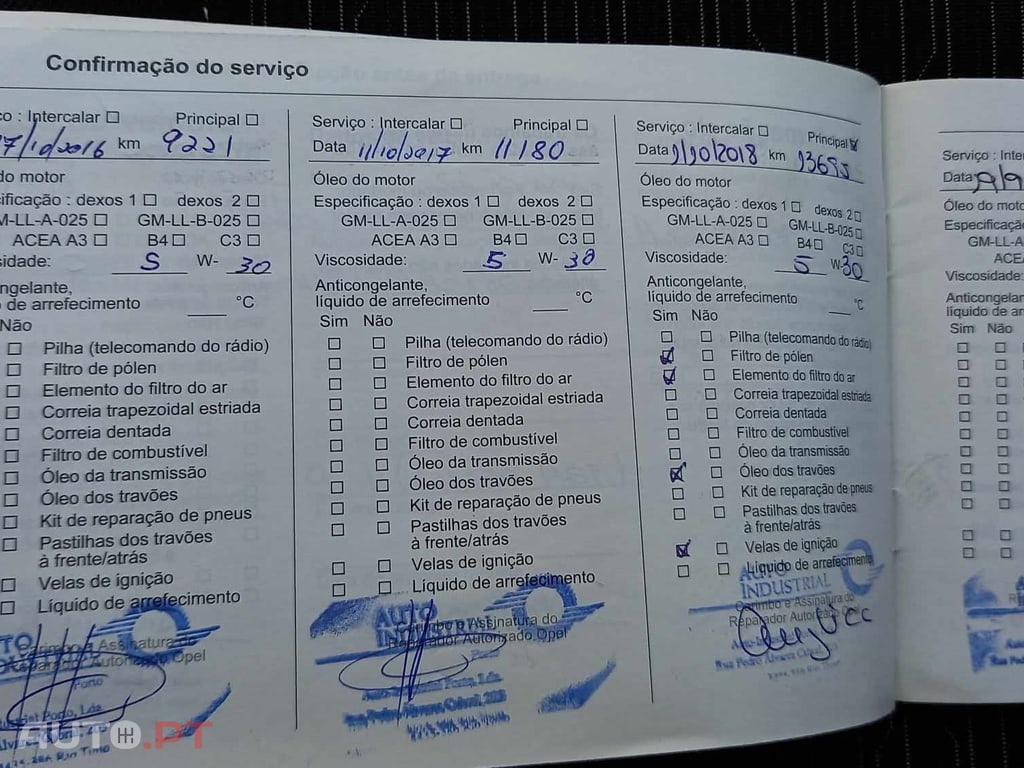 Confirmação do serviço
ço : Intercalar ☐ Principal ☐
7/10/2016 km 9221
do motor
cificação : dexos 1 ☐ dexos 2 ☐
GM-LL-A-025 ☐ GM-LL-B-025 ☐
ACEA A3 ☐ B4 ☐ C3 ☐
sidade: 5 W- 30
ongelante,
o de arrefecimento ___ °C
Não
☐ Pilha (telecomando do rádio)
☐ Filtro de pólen
☐ Elemento do filtro do ar
☐ Correia trapezoidal estriada
☐ Correia dentada
☐ Filtro de combustível
☐ Óleo da transmissão
☐ Óleo dos travões
☐ Kit de reparação de pneus
☐ Pastilhas dos travões
à frente/atrás
☐ Velas de ignição
☐ Líquido de arrefecimento
Carimbo e Assinatura do
Reparador Autorizado Opel
Porto
Serviço : Intercalar ☐ Principal ☐
Data 11/10/2017 km 11180
Óleo do motor
Especificação : dexos 1 ☐ dexos 2 ☐
GM-LL-A-025 ☐ GM-LL-B-025 ☐
ACEA A3 ☐ B4 ☐ C3 ☐
Viscosidade: 5 W- 30
Anticongelante,
líquido de arrefecimento ___ °C
Sim Não
☐ ☐ Pilha (telecomando do rádio)
☐ ☐ Filtro de pólen
☐ ☐ Elemento do filtro do ar
☐ ☐ Correia trapezoidal estriada
☐ ☐ Correia dentada
☐ ☐ Filtro de combustível
☐ ☐ Óleo da transmissão
☐ ☐ Óleo dos travões
☐ ☐ Kit de reparação de pneus
☐ ☐ Pastilhas dos travões
à frente/atrás
☐ ☐ Velas de ignição
☐ ☐ Líquido de arrefecimento
AUTO
INDUSTRIAL
Carimbo e Assinatura do
Reparador Autorizado Opel
Porto
Auto-Industrial Porto, Lda.
Rua Pedro Álvares Cabral,
Serviço : Intercalar ☐ Principal ☑
Data 9/10/2018 km 13695
Óleo do motor
Especificação : dexos 1 ☐ dexos 2 ☐
GM-LL-A-025 ☐ GM-LL-B-025 ☐
ACEA A3 ☐ B4 ☐ C3 ☐
Viscosidade: 5 W-30
Anticongelante,
líquido de arrefecimento ___ °C
Sim Não
☐ ☐ Pilha (telecomando do rádio)
☑ ☐ Filtro de pólen
☑ ☐ Elemento do filtro do ar
☐ ☐ Correia trapezoidal estriada
☐ ☐ Correia dentada
☐ ☐ Filtro de combustível
☐ ☐ Óleo da transmissão
☑ ☐ Óleo dos travões
☐ ☐ Kit de reparação de pneus
☐ ☐ Pastilhas dos travões
à frente/atrás
☑ ☐ Velas de ignição
☐ ☐ Líquido de arrefecimento
AUTO
INDUSTRIAL
Carimbo e Assinatura do
Reparador Autorizado Opel
Rua Pedro Álvares Cabral,
Serviço : Inter
Data
Óleo do moto
Especificaçã
GM-LL-A
ACE
Viscosidade:
Anticongelan
líquido de ar
Sim Não
Rua Pedro
AUTO.PT